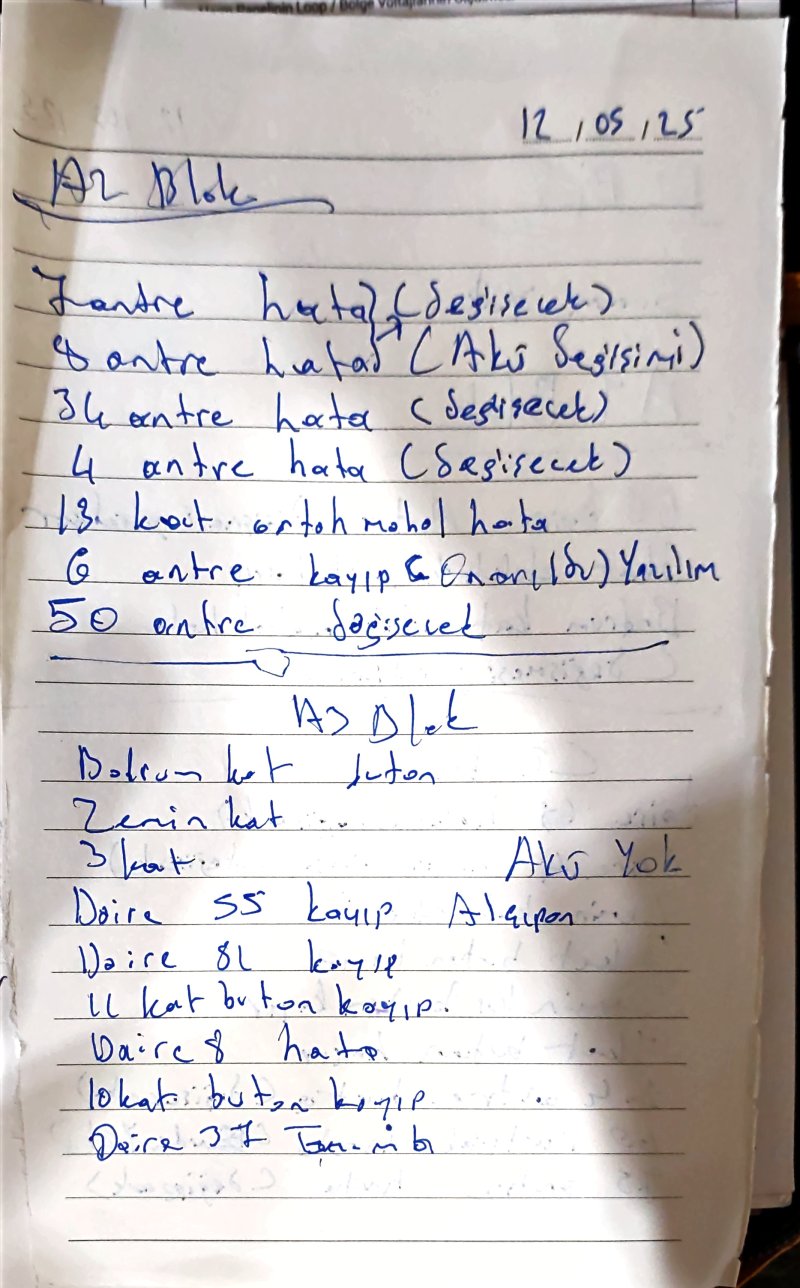 12,05,25
A2 Blok
7 antre hata (değişecek)
8 antre hata (Akü değişimi)
34 antre hata (değişecek)
4 antre hata (değişecek)
13 kat ortak mahal hata
6 antre kayıp (Onarıldı) Yazılım
50 antre değişecek
A3 Blok
Bodrum kat buton
Zemin kat
3 kat Akü Yok
Daire 55 kayıp Alçıpan
Daire 82 kayıp
11 kat buton kayıp.
Daire 8 hata
10 kat buton kayıp
Daire 37